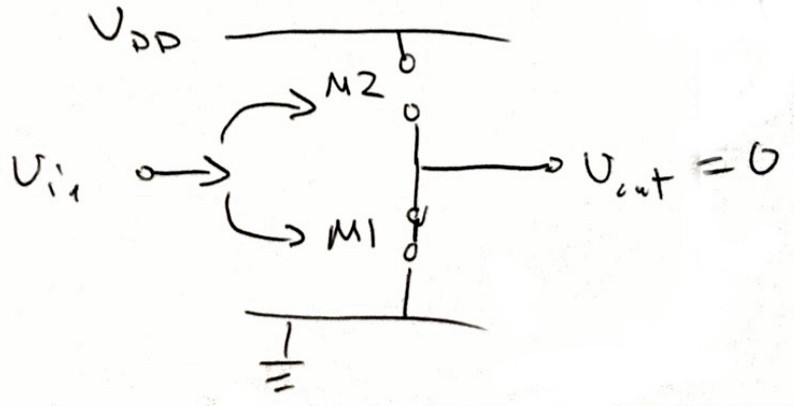 V_DD
M2
V_in
V_out = 0
M1